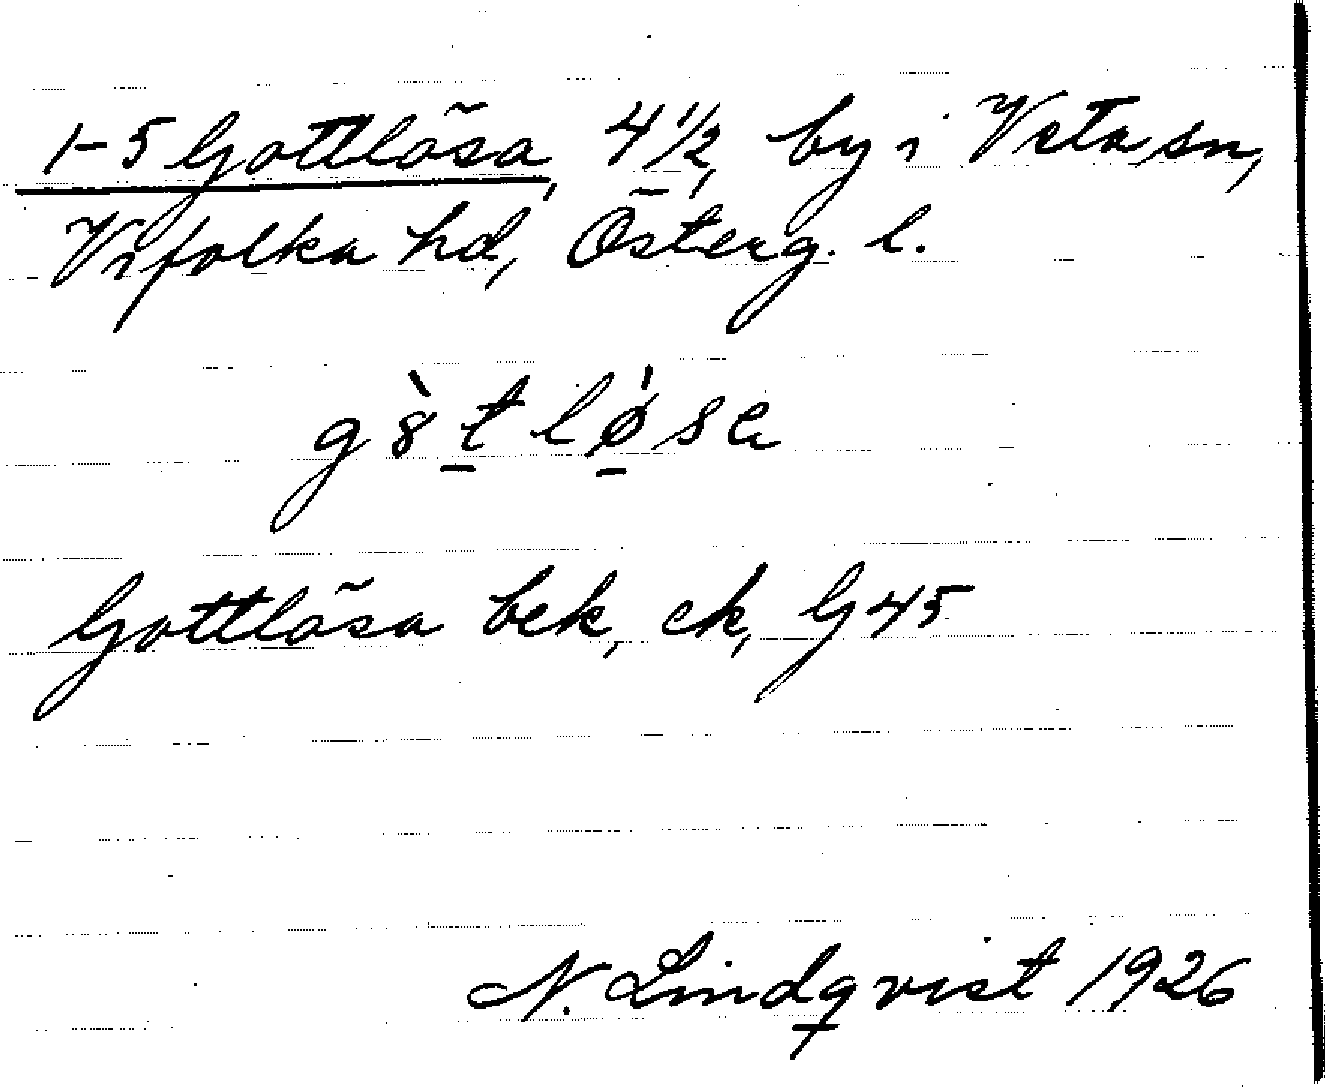 1-5 Gottlösa, 4 1/2, by i Veta sn,
Vifolka hd, Österg. l.
gò̀t lø̍sa
Gottlösa bek, ek, G45
N. Lindqvist 1926